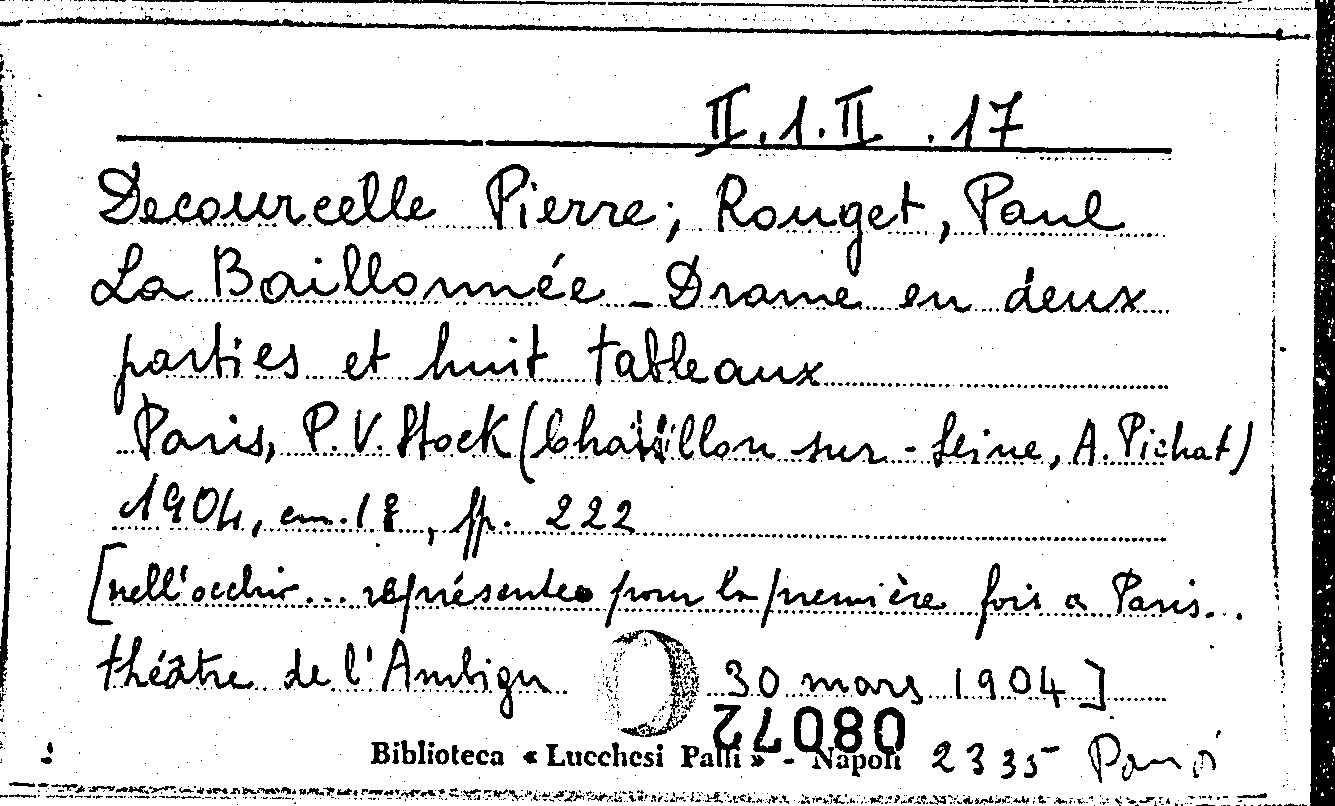 II.1.II.17
Decourcelle Pierre; Rouget, Paul
La Baillonnée - Drame en deux
parties et huit tableaux
Paris, P.V. Stock (Chatillon sur-Seine, A. Pichat)
1904, em.18, pp. 222
[nell'occhio... représentée pour la première fois a Paris...
théâtre de l'Ambigu 30 mars 1904]
08072
Biblioteca « Lucchesi Palli » - Napoli 2335